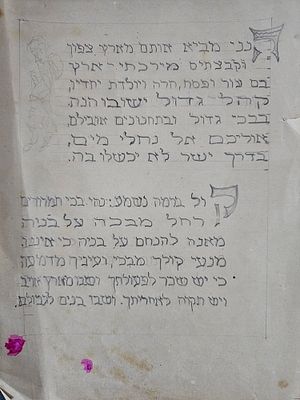 הנני מביא אותם מארץ צפון
וקבצתים מירכתי־ארץ
בם עור ופסח, הרה ויולדת יחדיו,
קהל גדול ישובו הנה.
בבכי גדול ובתחנונים אובילם
אוליכם אל נחלי מים,
בדרך ישר לא יכשלו בה.
קול ברמה נשמע: נהי בכי תמרורים
רחל מבכה על בניה
מאנה להנחם על בניה כי איננו.
מנעי קולך מבכי, ועיניך מדמעה,
כי יש שכר לפעולתך ושבו מארץ אויב.
ויש תקוה לאחריתך, ושבו בנים לגבולם.